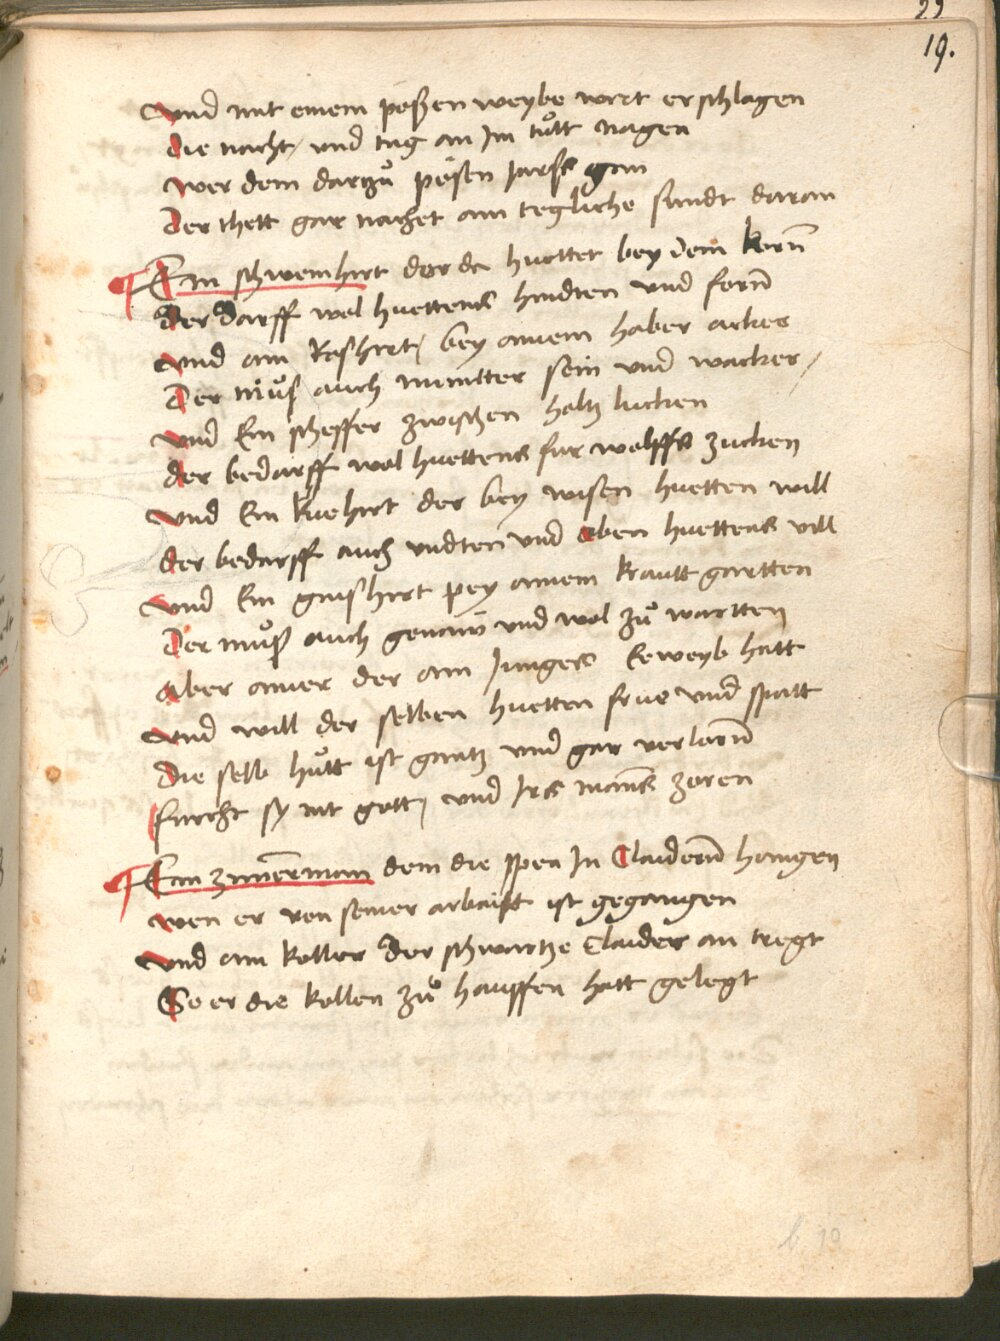 23
19.
Vnd mit einem poßen weybe wirt erschlagen
die nacht vnd tag an Im tůtt nagen
wer dem dartzů poͤsen
Der thett gar nachet ain tegliche sundt daran
Ein schweinhirt der da huettet bey dem korn̄
Der darff wol huettens hindten vnd forn̄
Vnd ain Roshirt bey ainem haber acker
Der můs auch muntter sein vnd wacker
Vnd Ein scheffer zwischen holtz lucken
der bedarff wol huettens fur wolffs zucken
Vnd Ein kuehirt der bey wisen huetten will
der bedarff auch vndten vnd oben huettens vill
Vnd Ein gaishirt pey ainem krautt gartten
Der můß auch genaw vnd wol zů wartten
Aber ainer der ain Junges Eeweyb hatt
Vnd will der selben huetten frue vnd spatt
Die selb hůtt ist gantz vnd gar verlorn̄
furcht sy nit gott vnd Irs mans̄ zoren
Ein zim̄erman dem die spen In Claidern̄ hangen
wen er von seiner arbaitt ist gegangen
Vnd ain koller der schwartze Claider an tregt
So er die kollen zů hauffen hatt gelegt